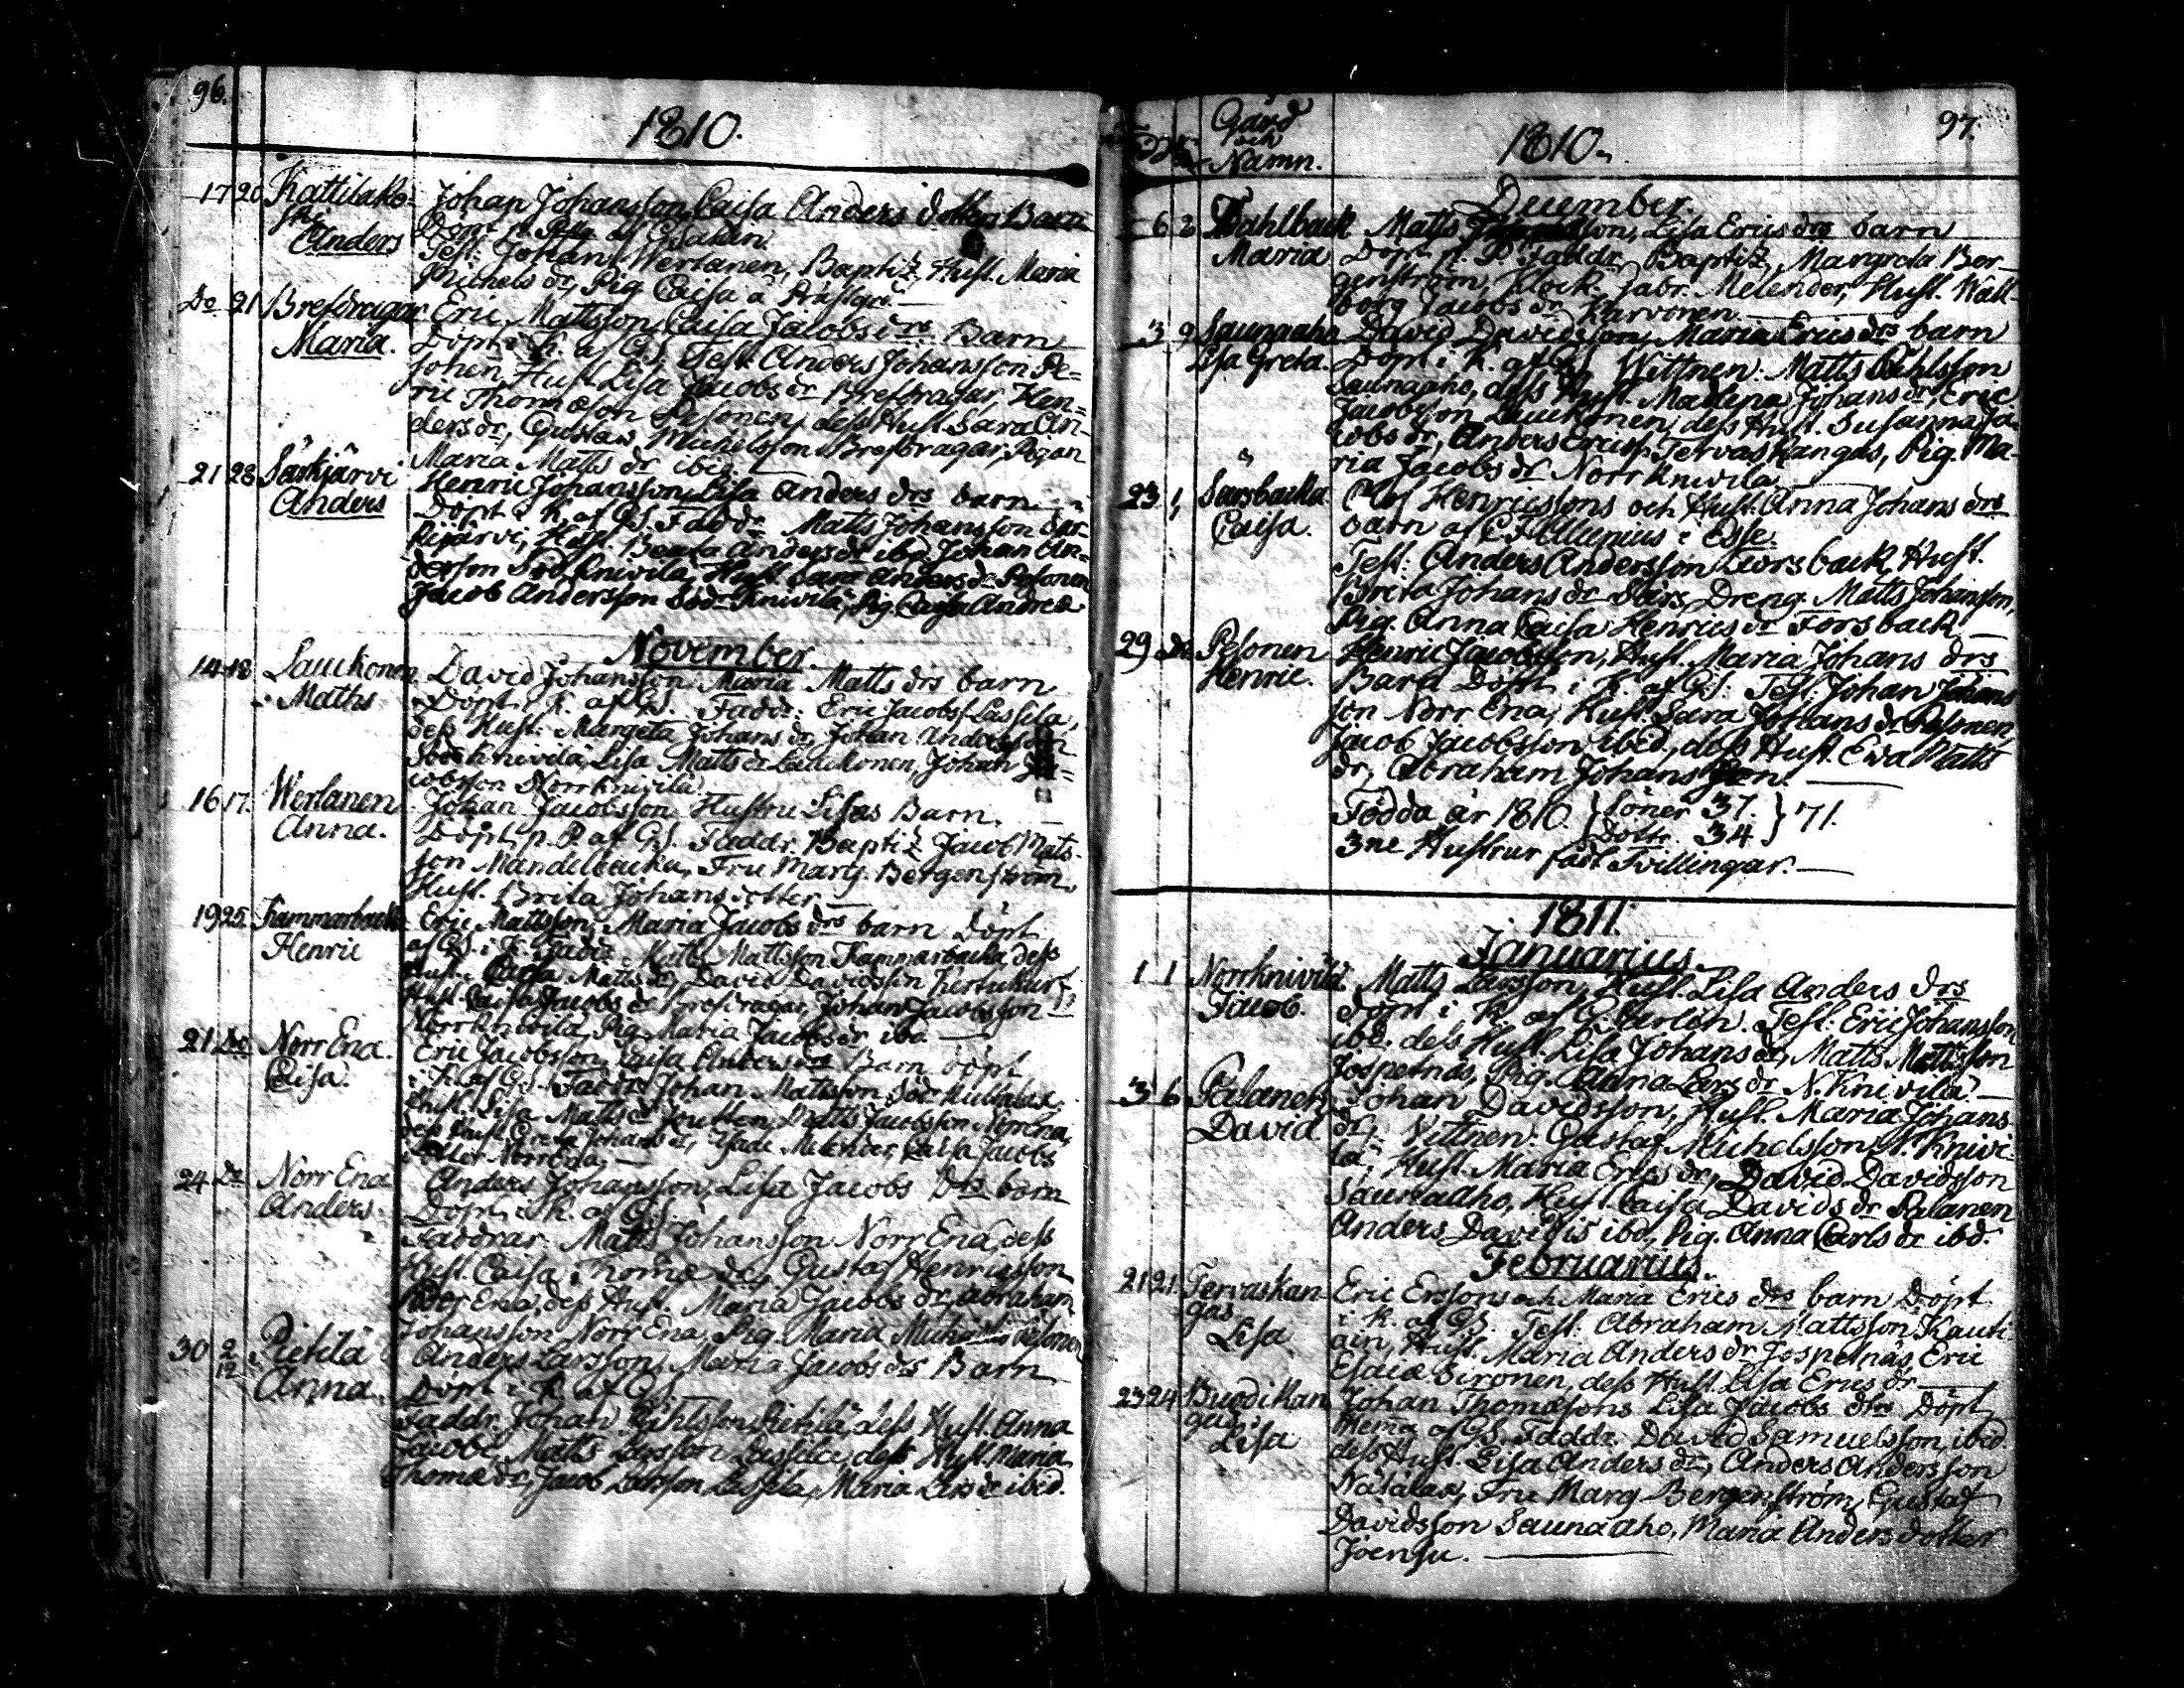 96.
1810.
17 20 Kattilako- Johan Johansson, Caisa Anders dotters Barn
ske Döpt
Anders Test: Johan Wertanen, Baptiz. Hust. Maria
Michels dr, Pig. Caisa å Prästgn.
Do 21 Brefdragar Eric Mattsson, Caisa Jacobs drs Barn
Maria. Döpt i K. af GS. Test. Anders Johansson
Hust. Lisa Jacobs dr Brefdragar, Hen-
ric Thomasson Pesonen, dess Hust. Sara An-
ders dr, Gustaw Michelsson Brefdragar, Pigan
Maria Matts dr ibid.
21 28 Särkjärvi Henric Johansson, Lisa Anders drs barn
Anders Döpt i K. af GS. Faddr Matts Johansson Sär-
kijärvi, Hust. Beata Anders dr ibd, Johan An-
dersson Söd. Knivilä, Hust. Sara Anders dr Pesonen
Jacob Andersson Södr Knivilä, Pig. Caisa Andreæ
November.
14 18 Lauckonen David Johansson Maria Matts drs barn
Maths Döpt i K. af GS. Faddr: Eric Jacobs. Lassila,
dess Hust: Margeta Johans dr, Johan Andersson
Söderknivilä, Lisa Matts dr Lauckonen, Johan Ja-
cobsson Norrknivilä.
16 17. Wertanen Johan Jacobsson Hustru Lisas Barn.
Anna. Döpt p. P. af GS. Faddr. Baptiz. Jacob Mats-
son Mandelbacka, Fru Marg. Bergenström,
Hust. Brita Johans dotter.
19 25. Kammarbacka Eric Mattsson, Maria Jacobs drs barn Döpt
Henric af GS. i K. Faddr. Matts Mattsson Kammarbacka dess
Hust. Caisa Matts dr, David Davidsson
Hust. Caisa Jacobs dr Brefdragar, Johan Jacobsson
Norrknivilä, Pig. Maria Jacobs dr ibd.
21 Do Norr Ena. Eric Jacobsson, Caisa Anders drs Barn döpt
Caisa. i K. af GS. Faddr: Johan Mattsson Södr
Hust. Lisa Matts dr Matts Jacobsson Norr Ena,
dess Hust. Greta Johans dr, Melender, Caisa Jacobs
dotter Norr Ena.
24 Do Norr Ena Anders Johansson, Lisa Jacobs Drs barn
Anders. Döpt i K. af GS.
Faddrar. Matts Johansson Norr Ena, dess
Hust. Caisa Thomæ dr, Gustaf Henricsson
Norr Ena, dess Hust. Maria Jacobs dr, Abraham
Johansson Norr Ena, Pig. Maria Michels dr Pesonen
30 2/12 Pietilä Anders Larsson, Maria Jacobs drs Barn
Anna. Döpt i K. af GS.
Faddr. Johan Påhlsson Pietilä, dess Hust. Anna
Jacobs, Matts Larsson Lassila, dess Hust. Maria
Thomæ dr, Jacob Larsson Lassila, Maria Lars dr ibid.
Gård
och
Namn.
1810.
97.
December.
6 2 Dahlback Matts son, Lisa Erics drs barn
Maria Döpt p. P. Faddr. Baptiz. Margreta Ber-
genström, Klock. Gabr. Melender, Hust. Wall-
borg Jacobs dr Karvonen.
3 9 Saunaaho David Davidsson, Maria Erics drs barn
Lisa Greta. Döpt i K. af GS. Wittnen: Matts Påhlsson
Saunaaho, dess Hust. Madlena Johans dr, Eric
Jacobsson Lauckonen, dess Hust. Susanna Ja-
cobs dr, Anders Ericss. Tervaskangas, Pig. Ma-
ria Jacobs dr Norrknivilä
23 1, Sarsbacka Henricssons och Hust. Anna Johans drs
Caisa. barn af C. F. Allenius i Esse.
Test: Anders Andersson Lorsback, Hust.
Brita Johans dr Sars, Dreng. Matts Johansson,
Pig. Anna Caisa Henrics dr Forsback
29 Do Pesonen Henric Jacobsson, Hust. Maria Johans drs
Henric. Barn Döpt i K. af GS: Test: Johan Johans
son Norr Ena, Hust. Sara Johans dr Pesonen,
Jacob Jacobsson ibid., dess Hust. Ewa Matts
dr, Abraham Johans son.
Födda år 1810. } Söner 37. } 71.
Dottr. 34
3ne Hustrur fådt Tvillingar.
1811.
Januarius.
1 1 Norrknivilä Matts Larsson, Hust. Lisa Anders drs
Jacob. döpt i K. af Test: Eric Johansson
ibd. dess Hust. Lisa Johans dr, Matts Mattsson
Jospetnäs, Pig. Anna Lars dr N. Knivilä.
3 6 Palanen Johan Davidsson, Hust. Maria Johans
David. dr, Vittnen: Gustaf Michelsson N. Knivi-
lä, Hust. Maria Erics dr, David Davidsson
Saunaaho, Hust. Caisa Davids dr Palanen
Anders Davidis ibd, Pig. Anna Carls dr ibd.
Februarius.
21 21. Tervaskan Eric Erssons och Maria Erics drs barn Döpt
gas i K. af GS. Test: Abraham Mattsson Kauti
Lisa ain, Hust. Maria Anders dr Jospetnäs, Eric
Esaiæ Sironen, dess Hust. Lisa Erics dr
23 24 Buodikan Johan Thomæsons Lisa Jacobs drs Döpt
gas. Hema af GS. Faddr. David Samuelsson ibid.
Lisa dess Hust. Lisa Anders dr, Anders Andersson
Fru Marg Bergenström, Gustaf
Davidsson Saunaaho, Maria Anders dotter
Joensu.